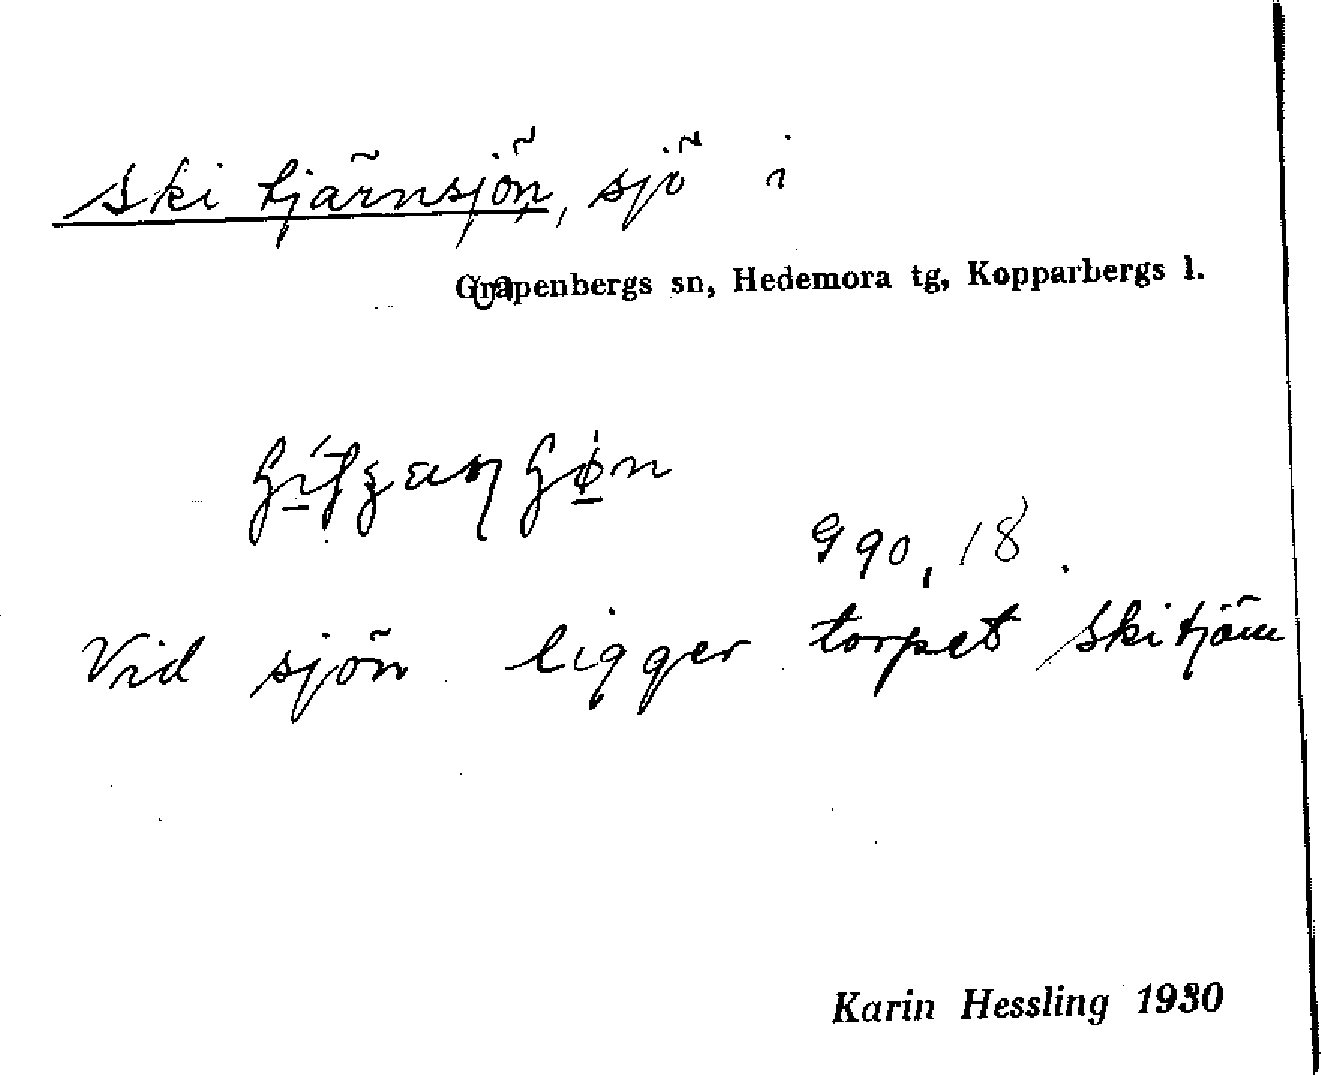 Skitjärnsjön, sjö i
Garpenbergs sn, Hedemora tg, Kopparbergs l.
990, 18.
Vid sjön ligger torpet Skitjärn
Karin Hessling 1930